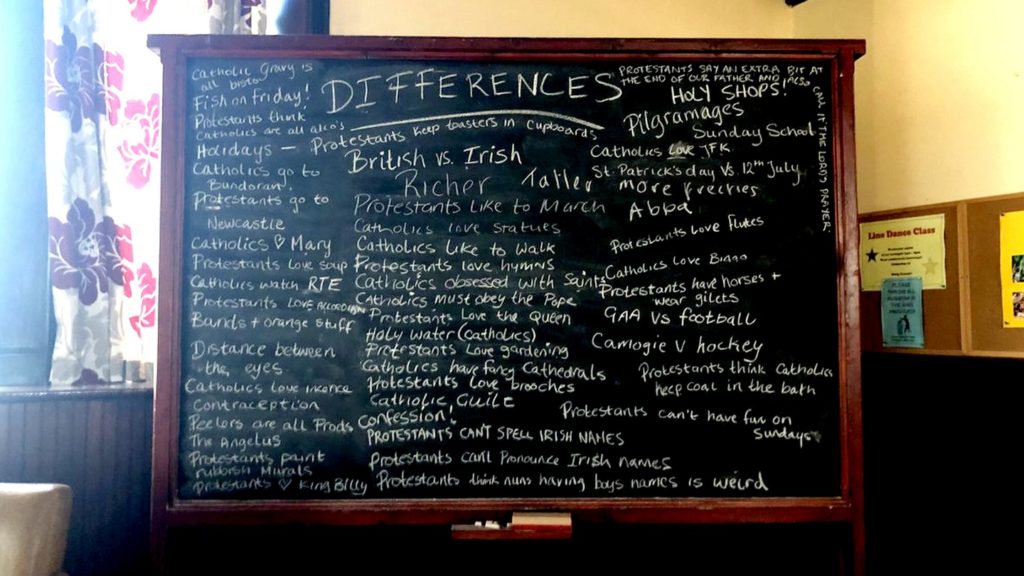 DIFFERENCES
Catholic Gravy is
all bisto
Fish on friday!
Protestants think
Catholics are all alco's
Holidays —
Catholics go to
Bundoran.
Protestants go to
Newcastle
Catholics ♡ Mary
Protestants love soup
Catholics watch RTE
Protestants LOVE ACCORDIAN
Bands + orange stuff
Distance between
the eyes
Catholics love incence
Contraception
Peelers are all Prods
The Angelus
Protestants paint
rubbish Murals
Protestants ♡ King Billy
Protestants keep toasters in cupboards
British vs. Irish
Richer
Taller
Protestants like to March
Catholics love statues
Catholics like to walk
Protestants love hymns
Catholics obsessed with Saints
Catholics must obey the Pope
Protestants Love the Queen
Holy water (Catholics)
Protestants Love gardening
Catholics have fancy Cathedrals
Protestants Love brooches
Catholic Guilt
Confession!
PROTESTANTS CAN'T SPELL IRISH NAMES
Protestants can't Pronounce Irish names
Protestants think nuns having boys names is weird
PROTESTANTS SAY AN EXTRA BIT AT
THE END OF OUR FATHER AND ALSO
CALL IT THE LORDS PRAYER
HOLY SHOPS!
Pilgramages
Sunday School
Catholics Love JFK
St. Patrick's day Vs. 12th July
more freckles
Abba
Protestants Love Flutes
Catholics Love Bingo
Protestants have horses +
wear gilets
GAA Vs football
Camogie V hockey
Protestants think Catholics
keep coal in the bath
Protestants can't have fun on
Sundays
Line Dance Class